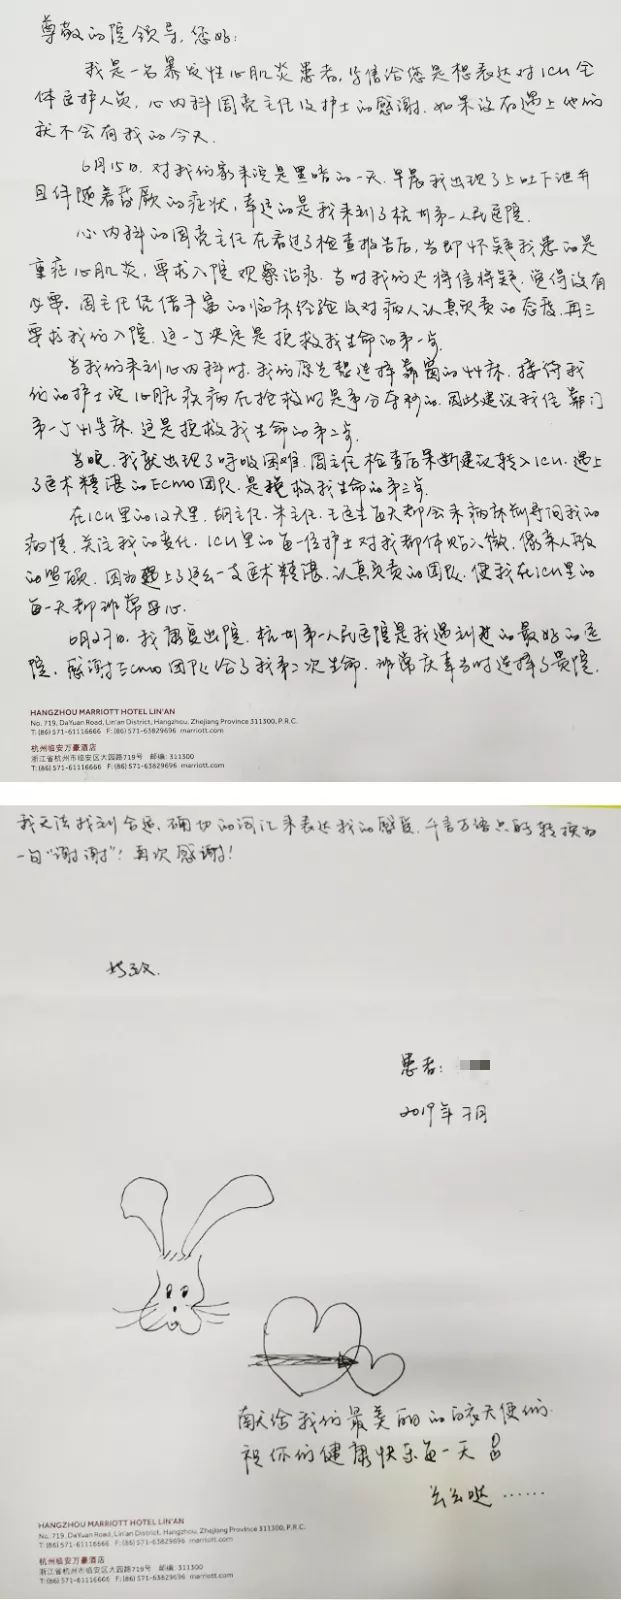 尊敬的院领导，您好：
我是一名暴发性心肌炎患者，写信给您是想表达对ICU全
体医护人员，心内科周亮主任及护士的感谢．如果没有遇上他们
就不会有我的今天．
6月15日，对我们家来说是黑暗的一天，早晨我出现了上吐下泄并
且伴随着昏厥的症状，幸运的是我来到了杭州第一人民医院．
心内科的周亮主任在看过了检查报告后，当即怀疑我患的是
重症心肌炎，要求入院观察治疗．当时我们还将信将疑，觉得没有
必要．周主任凭借丰富的临床经验及对病人认真负责的态度，再三
要求我们入院．这一个决定是挽救我生命的第一步．
当我们来到心内科时，我们原先想选择靠窗的44床．接待我
们的护士说心脏疾病在抢救时是争分夺秒的，因此建议我住靠门
第一个41号床．这是挽救我生命的第二步．
当晚，我就出现了呼吸困难．周主任检查后果断建议转入ICU．遇上
了医术精湛的ECMO团队．是挽救我生命的第三步．
在ICU里的12天里．胡主任．朱主任．王医生每天都会来病床前询问我的
病情．关注我的变化．ICU里的每一位护士对我都体贴入微．像亲人般
的照顾．因为遇上了这么一支医术精湛．认真负责的团队．使我在ICU里的
每一天都非常安心．
6月27日，我康复出院．杭州第一人民医院是我遇到过的最好的医
院．感谢ECMO团队给了我第二次生命．非常庆幸当时选择了贵院．
HANGZHOU MARRIOTT HOTEL LIN'AN
No. 719, DaYuan Road, Lin'an District, Hangzhou, Zhejiang Province 311300, P.R.C.
T: (86) 571-61116666 F: (86) 571-63829696 marriott.com
杭州临安万豪酒店
浙江省杭州市临安区大园路719号 邮编: 311300
T: (86) 571-61116666 F: (86) 571-63829696 marriott.com
我无法找到合适．确切的词汇来表达我的感受．千言万语只能转换为
一句“谢谢”！再次感谢！
此致．
患者：
2019年7月
献给我们最美丽的白衣天使们．
祝你们健康快乐每一天
么么哒……
HANGZHOU MARRIOTT HOTEL LIN'AN
No. 719, DaYuan Road, Lin'an District, Hangzhou, Zhejiang Province 311300, P.R.C.
T: (86) 571-61116666 F: (86) 571-63829696 marriott.com
杭州临安万豪酒店
浙江省杭州市临安区大园路719号 邮编: 311300
T: (86) 571-61116666 F: (86) 571-63829696 marriott.com